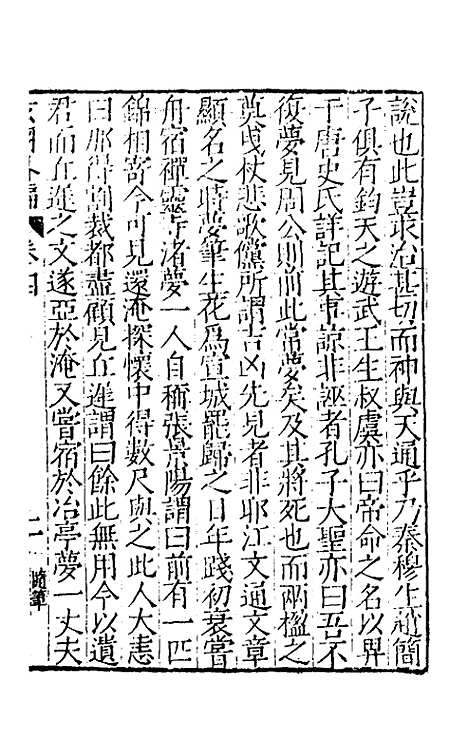 說也此豈求治甚切而神與天通乎乃秦穆生趙簡
子俱有鈞天之遊武王生叔虞亦曰帝命之名以畀
于唐史氏詳記其事諒非誣者孔子大聖亦曰吾不
復夢見周公則前此常夢矣及其將死也而兩楹之
奠曵杖悲歌儻所謂吉凶先見者非耶江文通文章
顯名之時夢筆生花爲宣城罷歸之日年踐初衰嘗
舟宿禪靈寺渚夢一人自稱張景陽謂曰前有一匹
錦相寄今可見還淹探懷中得數尺與之此人大恚
曰那得割裁都盡顧見丘遲謂曰餘此無用今以遺
君而丘遲之文遂亞於淹又嘗宿於冶亭夢一丈夫
卷四
隨筆